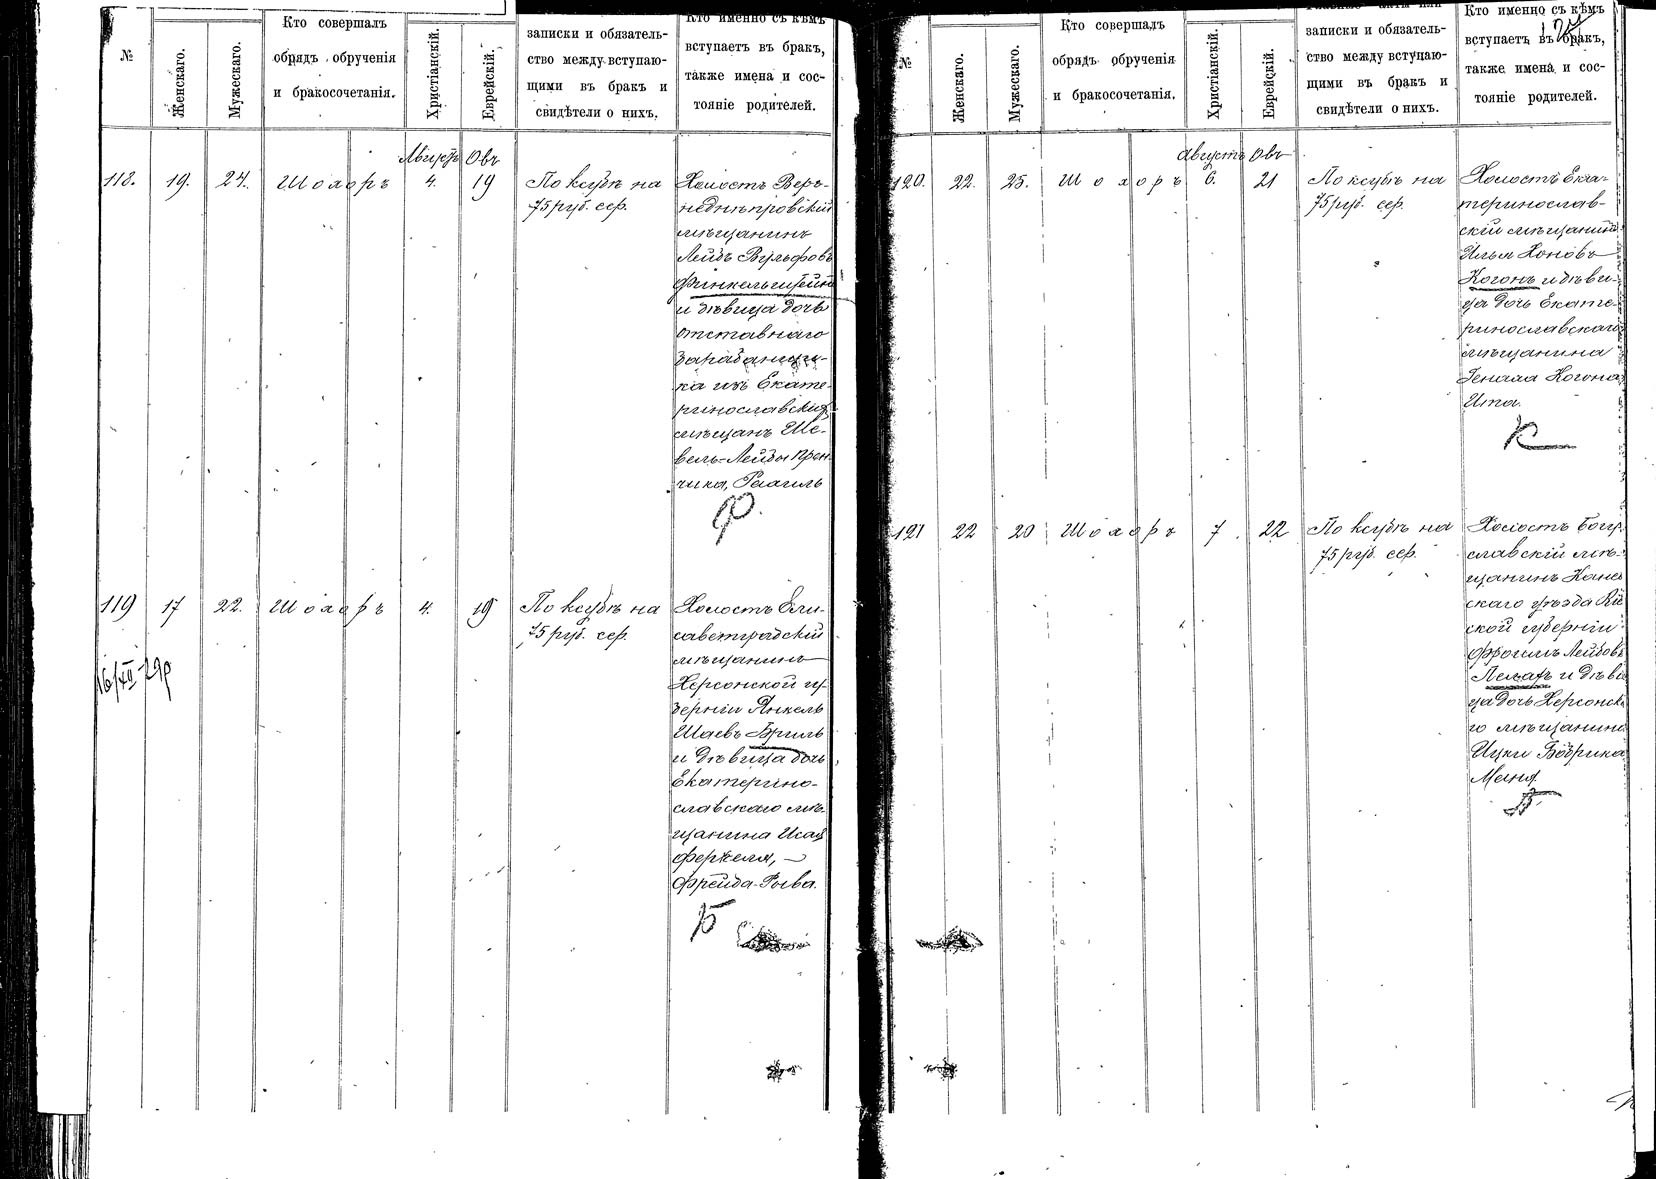 №
Женскаго.
Мужескаго.
Кто совершалъ
обрядъ обрученія
и бракосочетанія.
Христіанскій.
Еврейскій.
записки и обязатель-
ство между вступаю-
щими въ бракъ и
свидѣтели о нихъ.
Кто именно съ кѣмъ
вступаетъ въ бракъ,
также имена и сос-
тояніе родителей.
Августъ Овъ
118. 19. 24. Шохоръ 4. 19
По ксубѣ на
75 руб. сер.
Холостъ Верх-
неднѣпровскій
мѣщанинъ
Лейбъ Вульфовъ
Финкельштейнъ
и дѣвица дочь
отставнаго
барабанщи-
ка изъ Екате-
ринославскихъ
мѣщанъ Ше-
вель-Лейбы
Рахиль
119 17 22. Шохоръ 4. 19
По ксубѣ на
75 руб. сер.
Холостъ Ели-
саветградскій
мѣщанинъ
Херсонской гу-
берніи Янкель
Шаевъ Бриль
и дѣвица дочь
Екатерино-
славскаго мѣ-
щанина
Фрейда-Рыва.
Б
№
Женскаго.
Мужескаго.
Кто совершалъ
обрядъ обрученія
и бракосочетанія.
Христіанскій.
Еврейскій.
записки и обязатель-
ство между вступаю-
щими въ бракъ и
свидѣтели о нихъ.
Кто именно съ кѣмъ
вступаетъ въ бракъ,
также имена и сос-
тояніе родителей.
Августъ Овъ
120. 22. 25. Шохоръ 6. 21
По ксубѣ на
75 руб. сер.
Холостъ Ека-
теринослав-
скій мѣщанинъ
Илья Хоновъ
Когонъ и дѣви-
ца дочь Екате-
ринославскаго
мѣщанина
Когона
Ита.
К
121 22 20 Шохоръ 7. 22
По ксубѣ на
75 руб. сер.
Холостъ Богу-
славскій мѣ-
щанинъ Канев
скаго уѣзда Кіе
ской губерніи
Фроимъ Лейбовъ
и дѣви
ца дочь Херсонска
го мѣщанина
Ицки Бобрика
Маня.